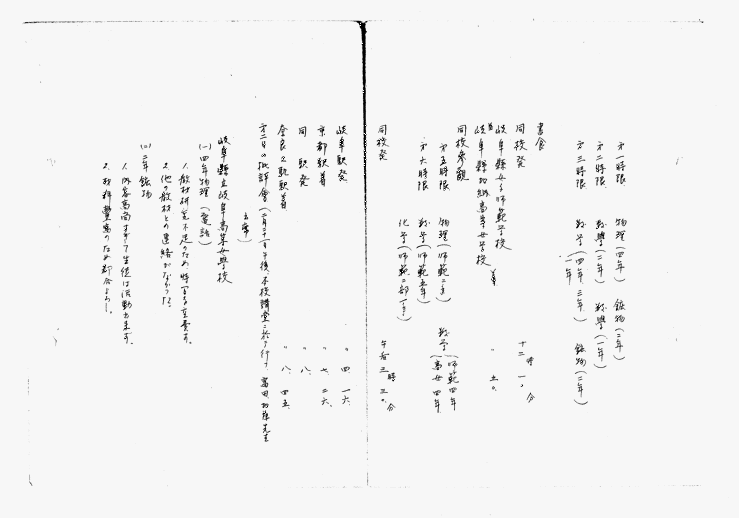 第一時限 物理(四年) 鉱物(二年)
第二時限 数学(二年) 数学(一年)
第三時限 数学(四年、三年、一年) 鉱物(二年)
昼食
同校発 十二時 一〇分
岐阜縣女子師範学校
岐阜縣加納高等女学校 着 〃 五〇
同校参観
第五時限 物理(師範二年) 数学(師範四年 高女四年)
第六時限 数学(師範五年)
化学(師範二部一年)
同校発 午后三時三〇分
岐阜駅発 〃 四 一六
京都駅着 〃 七 二六
同駅発 〃 八
奈良 駅着 〃 八 四五
第二日の批評会(二月二十一日午後本校講堂ニ於テ行フ
岐阜縣立岐阜高等女学校
(一)四年物理(電話)
1. 教材研究不足のため
2. 他の教材との連絡がなかった。
(二)二年鉱物
1. 内容高尚すぎて生徒は活動出来ず。
2. 材料豊富のため都合よし。